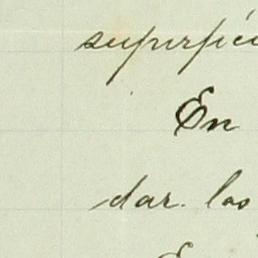 superfici
En
dar. los